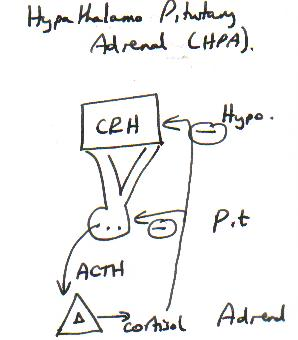 Hypothalamo Pituitary
Adrenal (HPA).
CRH
Hypo.
Pit
ACTH
cortisol
Adrenal